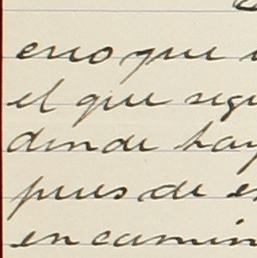 eno que
el que segu
dende hay
pues de es
en camin